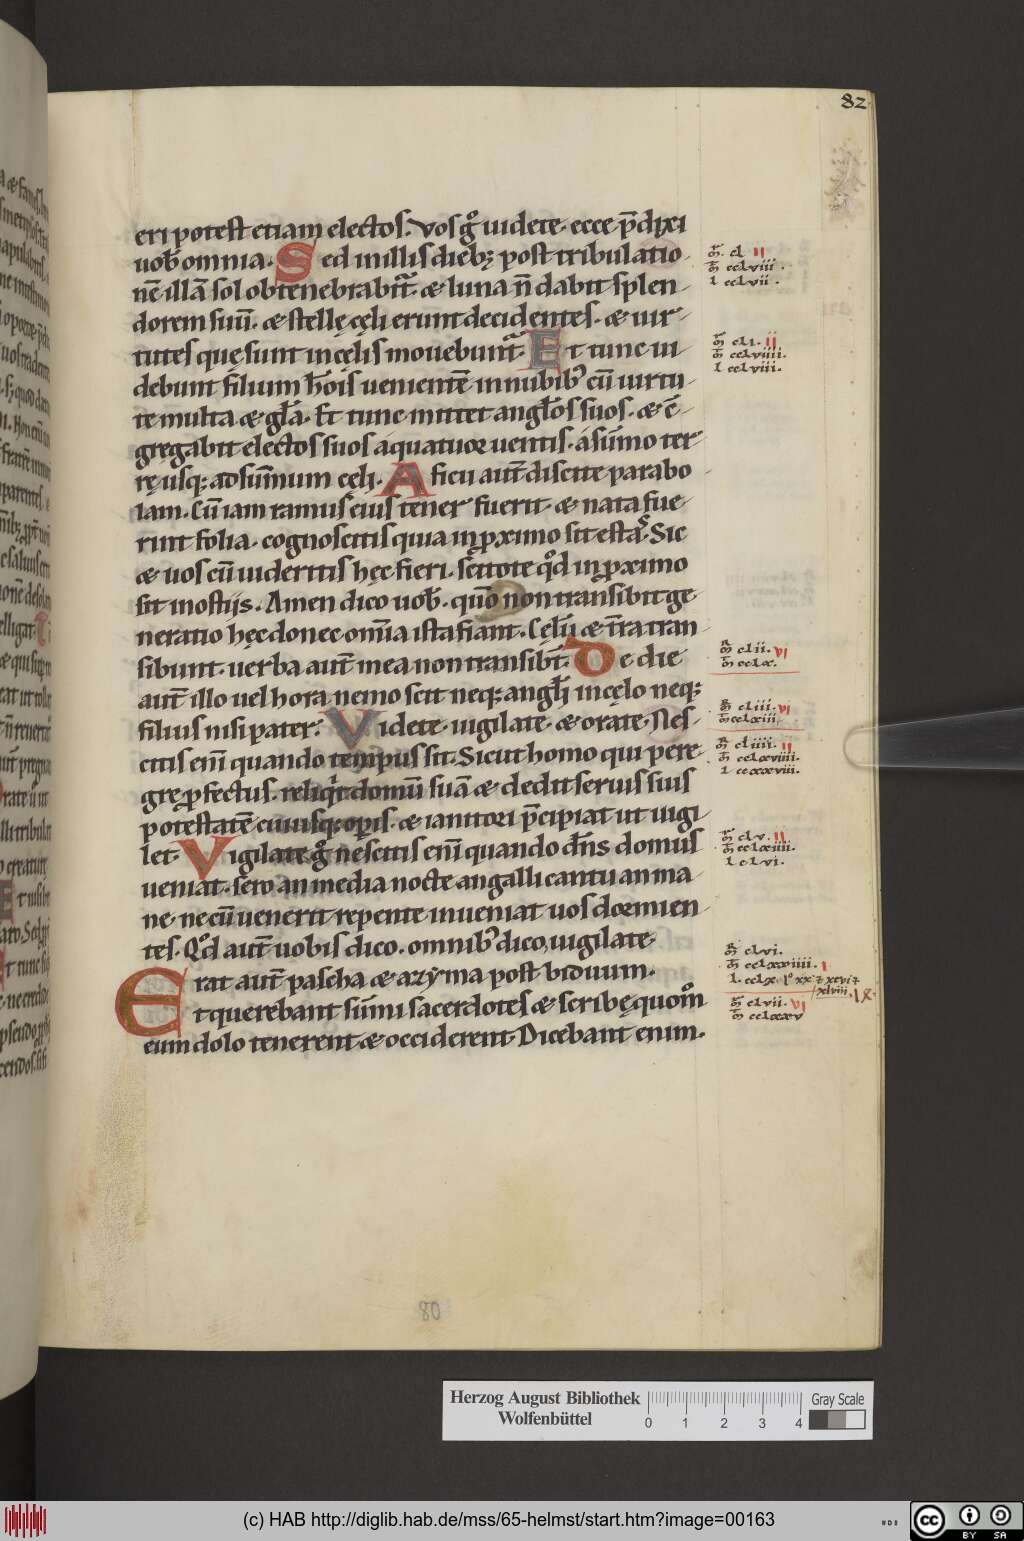 82
eri potest etiam electos. Vos g̊ uidete. ecce p̄dixi
uob̄ omnia. Sed in illis dieb; post tribulatio
nē illā sol obtenebrabit̄. & luna n̄ dabit splen
dorem suū. & stellę cęli erunt decidentes. & uir
tutes quę sunt in cęlis mouebunt̄. Et tunc ui
debunt filium ho̅is uenientē in nubib᾽ cū uirtu
te multa & gl̄a. Et tunc mittet angl̄os suos. & c̄
gregabit electos suos a quatuor uentis. á sūmo ter
rę usq; ad sūmum cęli. A ficu aut̄ discite parabo
lam. Cū iam ramus eius tener fuerit. & nata fue
rint folia. cognoscitis quia in ꝓximo sit estas. Sic
& uos cū uideritis hęc fieri. scitote qd̊ in ꝓximo
sit in ostijs. Amen dico uob̄. quō non transibit ge
neratio hęc donec om̄ia ista fiant. Cęlū & t̄ra tran
sibunt. uerba aut̄ mea non transibt̄. De die
aut̄ illo uel hora nemo scit neq; angl̄i in cęlo neq;
filius nisi pater. Videte. uigilate. & orate. Nes
citis eni̅ quando tempus sit. Sicut homo qui pere
gre ꝓfectus. reliqͥt domū suā & dedit seruis suis
potestatē cuiusq; op̲is. & ianitori p̄cipiat ut uigi
let. Vigilate g̊ nescitis eni̅ quando dn̄s domus
ueniat. sero an media nocte an galli cantu an ma
ne. ne cū uenerit repente inueniat uos dormien
tes. Qd̊ aut̄ uobis dico. omnib᾽ dico, uigilate.
Erat aut̄ pascha & azyma post biduum.
Et querebant sūmi sacerdotes & scribę quom̊
eum dolo tenerent & occiderent. Dicebant enim.
m̄. cl. II
m̄ cclviii.
l cclvii.
m̄ cli. II
m̄ cclviiii.
l cclviii.
m̄ clii. VI
m̄ cclx.
m̄ cliii. VI
m̄ cclxiii
m̄ cliiii. II
m̄ cclxviii.
m̄ clv. II
m̄ cclxiiii.
l clvi.
m̄ clvi.
m̄ cclxxiiii. I
l. cclx.
xlviii.
m̄ clvii. VI
m̄ cclxxv
80
Herzog August Bibliothek
Wolfenbüttel
0 1 2 3 4
Gray Scale
(c) HAB http://diglib.hab.de/mss/65-helmst/start.htm?image=00163
cc BY SA